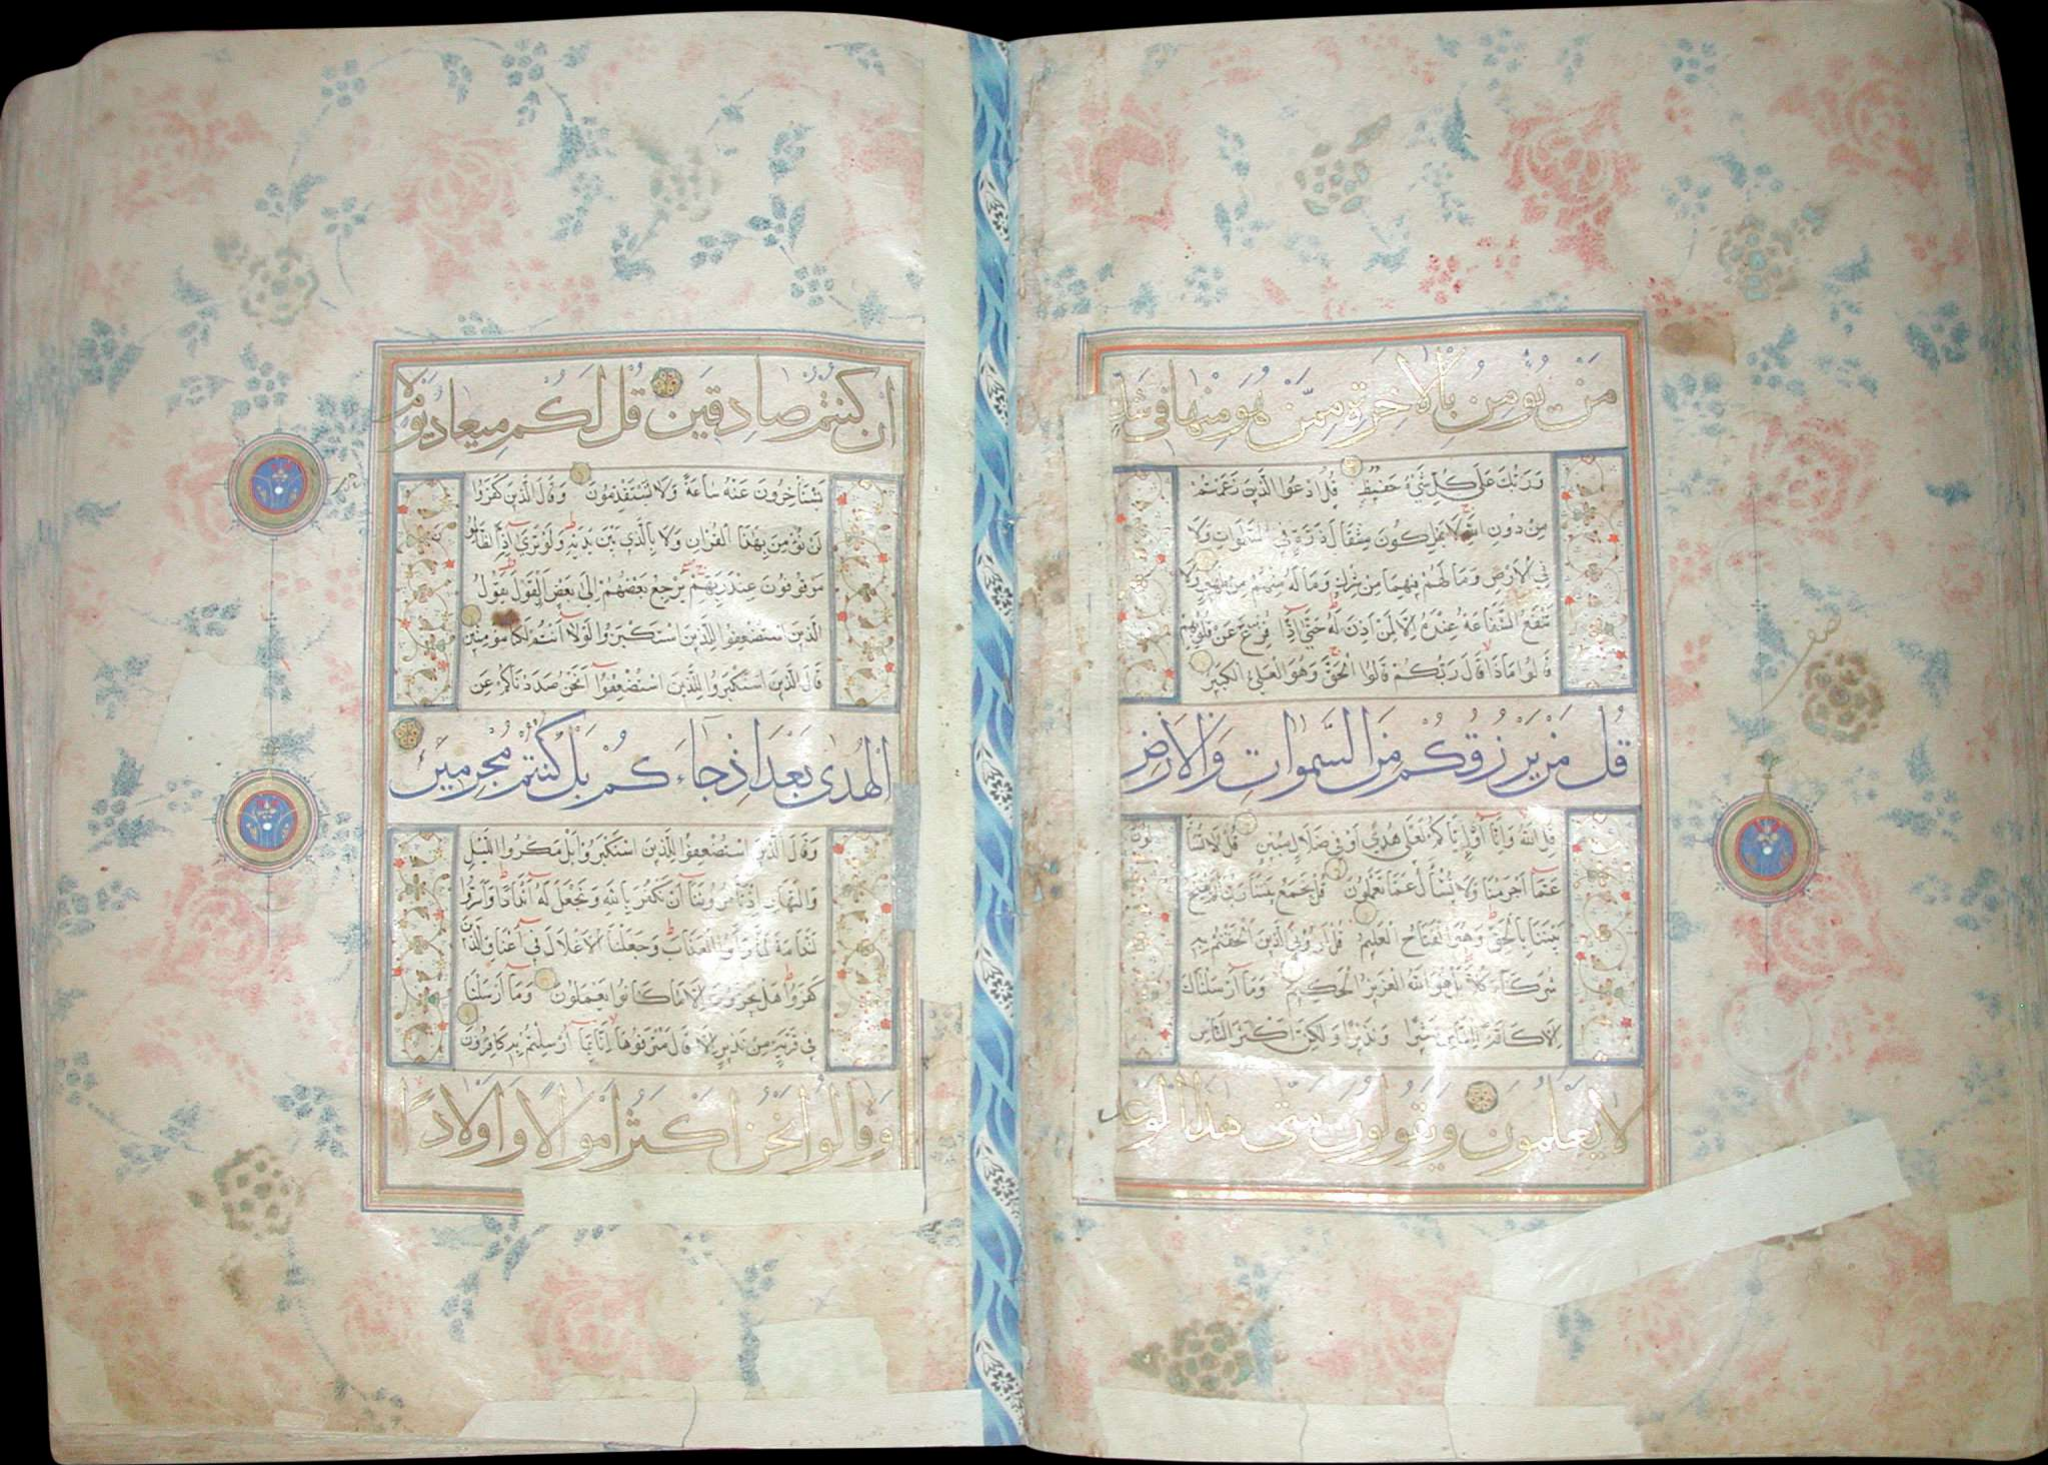 من يؤمن بالاخرة ممن هو منها في شك
وربك على كل شيء حفيظ قل ادعوا الذين زعمتم
من دون الله لا يملكون مثقال ذرة في السموات ولا
في الارض وما لهم فيهما من شرك وما له منهم من ظهير ولا
تنفع الشفاعة عنده الا لمن اذن له حتى اذا فزع عن قلوبهم
قالوا ماذا قال ربكم قالوا الحق وهو العلي الكبير
قل من يرزقكم من السموات والارض
قل الله وانا او اياكم لعلى هدى او في ضلال مبين قل لا تسألون
عما اجرمنا ولا نسأل عما تعملون قل يجمع بيننا ربنا ثم يفتح
بيننا بالحق وهو الفتاح العليم قل اروني الذين الحقتم به
شركاء كلا بل هو الله العزيز الحكيم وما ارسلناك
الا كافة للناس بشيرا ونذيرا ولكن اكثر الناس
لا يعلمون ويقولون متى هذا الوعد
نصف
ان كنتم صادقين قل لكم ميعاد يوم لا
تستأخرون عنه ساعة ولا تستقدمون وقال الذين كفروا
لن نؤمن بهذا القران ولا بالذي بين يديه ولو ترى اذ الظالمون
موقوفون عند ربهم يرجع بعضهم الى بعض القول يقول
الذين استضعفوا للذين استكبروا لولا انتم لكنا مؤمنين
قال الذين استكبروا للذين استضعفوا انحن صددناكم عن
الهدى بعد اذ جاءكم بل كنتم مجرمين
وقال الذين استضعفوا للذين استكبروا بل مكر الليل
والنهار اذ تأمروننا ان نكفر بالله ونجعل له اندادا واسروا
الندامة لما رأوا العذاب وجعلنا الاغلال في اعناق الذين
كفروا هل يجزون الا ما كانوا يعملون وما ارسلنا
في قرية من نذير الا قال مترفوها انا بما ارسلتم به كافرون
وقالوا نحن اكثر اموالا واولادا